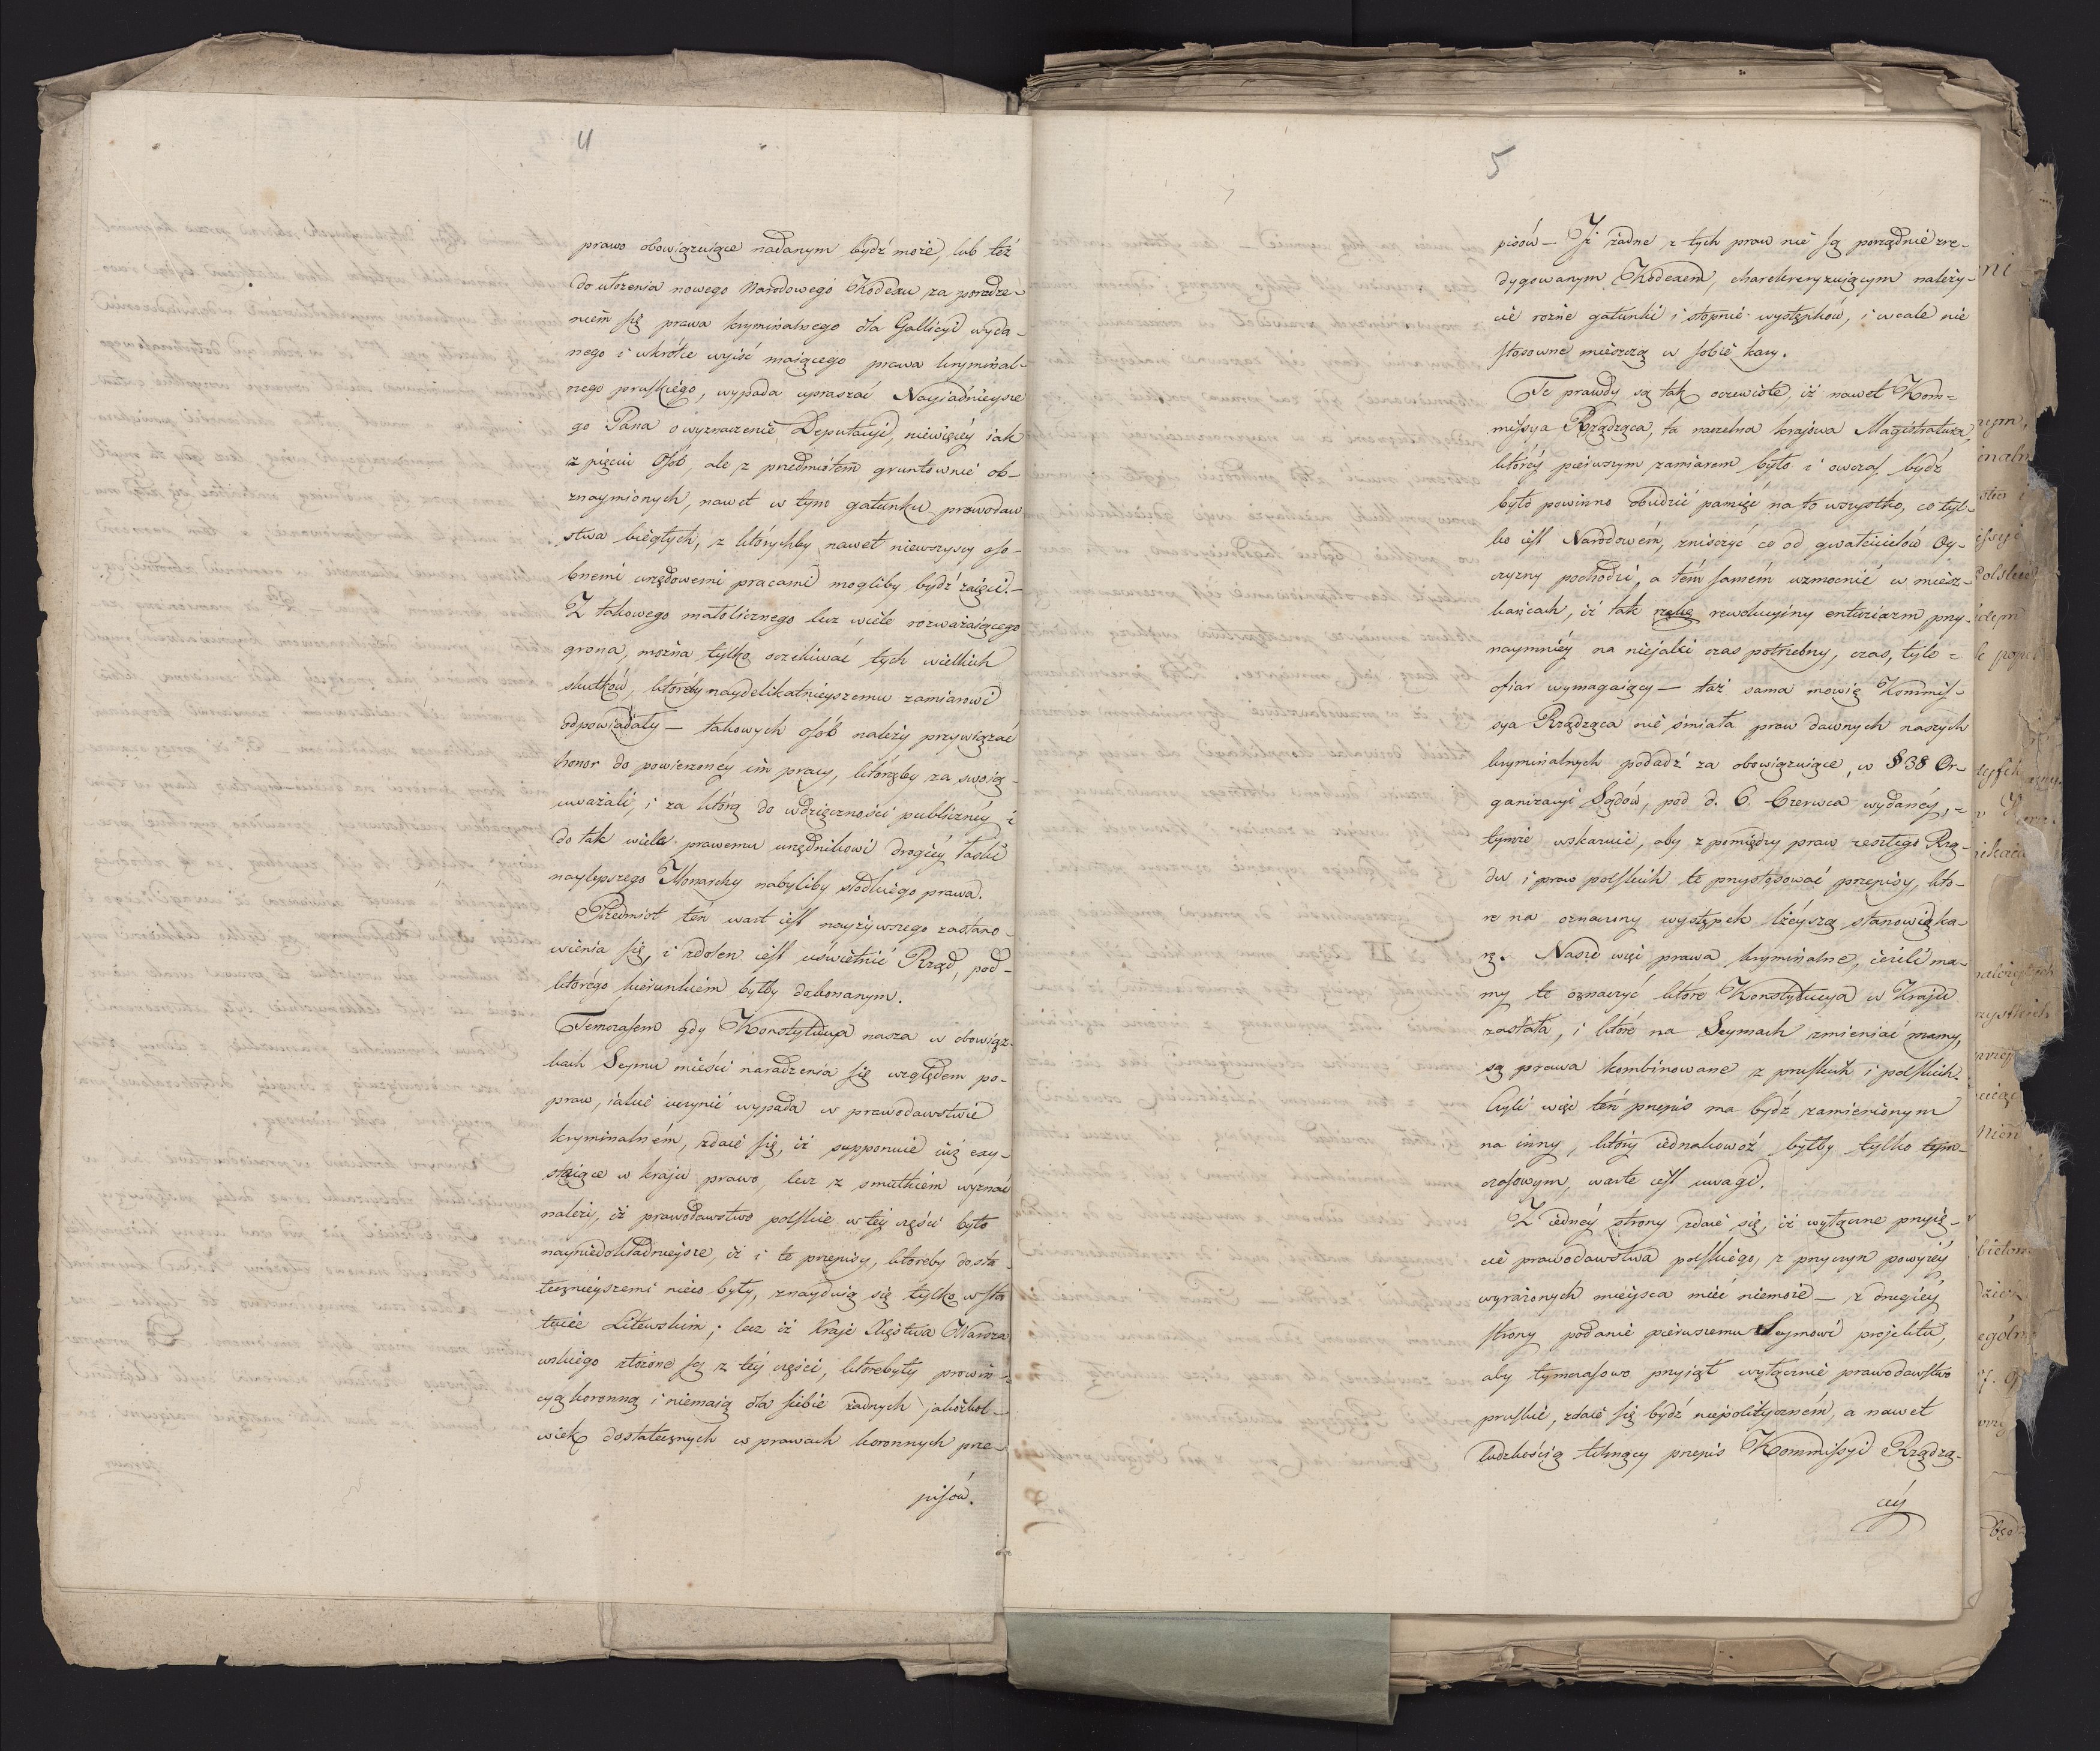 4
prawo obowiązuiące nadanym bydź może, lub też
do ułożenia nowego Narodowego Kodexu, za poradze-
niem się prawa kryminalnego dla Gallicyi wyda-
nego i wkrótce wyiść maiącego prawa kryminal-
nego pruskiego, wypada upraszać Nayiaśnieysze
go Pana o wyznaczenie Deputacyi, niewięcéy iak
z pięciu Osob, ale z przedmiotem gruntownie ob-
znaymionych, nawet w tym gatunku prawodaw
stwa biegłych, z którychby nawet niewszyscy oso-
bnemi urzędowemi pracami mogliby bydź zaięci.-
Z takowego małolicznego lecz wiele rozważaiącego
grona, można tylko oczekiwać tych wielkich
skutków, któreby naydelikatnieyszemu zamiarowi
odpowiadały — takowych osób należy przywiązać
honor do powierzonéy im pracy, którąby za swoią
uważali, i za którą do wdzięczności publicznéy i
do tak wiele prawemu urzędnikowi drogiéy łaski
naylepszego Monarchy nabyliby słodkiego prawa.
Przedmiot ten wart iest nayżywszego zastano-
wienia się, i zdolen iest uświetnić Rząd, pod-
którego kierunkiem byłby dokonanym.
Temczasem gdy Konstytucya nasza w obowiąz-
kach Seymu mieści naradzenia się względem po-
praw, iakie uczynić wypada w prawodawstwie
kryminalném, zdaie się, iż supponuie iuż exy-
stuiące w kraju prawo, lecz z smutkiem wyznać
należy, iż prawodawstwo polskie w téy części było
nayniedokładnieysze, iż i te przepisy, któreby dosta-
tecznieyszemi nieco były, znayduią się tylko w Sta
tucie Litewskim; lecz iż Kraje Xięstwa Warsza
wskiego złożone są z téy części, które były prowin-
cyą koronną i niemaią dla siebie żadnych jakożkol-
wiek dostatecznych w prawach koronnych prze-
pisów.
5
pisów — Iż żadne z tych praw nie są porządnie zre-
dygowanym Kodexem, charekteryzuiącym należy-
cie rożne gatunki i stopnie występków, i wcale nie
stosowne mieszczą w sobie kary.
Te prawdy są tak oczewiste, iż nawet Kom-
missya Rządząca, ta naczelna krajowa Magistratura,
któréy pierwszym zamiarem było i owczas bydź
było powinno obudzić pamięć na to wszystko, co tyl-
ko iest Narodowém, zniszczyć co od gwałcicielów Oy-
czyzny pochodzi, a tém samém wzmocnić w miesz-
kańcach, iż tak rewolucyiny entuziazm, przy-
naymniéy na niejaki czas potrzebny, czas, tyle
ofiar wymagaiący — taż sama mowię Kommis-
sya Rządząca nie śmiała praw dawnych naszych
kryminalnych podadź za obowiązuiące, w § 38 Or-
ganizacyi Sądów, pod d. 6. Czerwca wydanéy,
tymże wskazuie, aby z pomiędzy praw zeszłego Rzą-
du i praw polskich te przystosować przepisy, któ-
re na oznaczony występek lżéyszą stanowią ka-
rę. Nasze więc prawa kryminalne, ieżeli ma-
my te oznaczyć które Konstytucya w Kraju
zastała, i które na Seymach zmieniać mamy,
są prawa kombinowane z pruskich i polskich.
Czyli więc ten przepis ma bydź zamienionym
na inny, który iednakowoż byłby tylko tym-
czasowym, warte iest uwagi.
Z iednéy strony zdaie się, iż wyłączne przyię-
cie prawodawstwa polskiego, z przyczyn powyżéy
wyrażonych mieysca mieć niemoże — z drugiéy
strony podanie pierwszemu Seymowi projektu,
aby tymczasowo przyiął wyłącznie prawodawstwo
pruskie, zdaie się bydź niepolityczném, a nawet
ludzkością tchnący przepis Kommissyi Rządzą-
céy